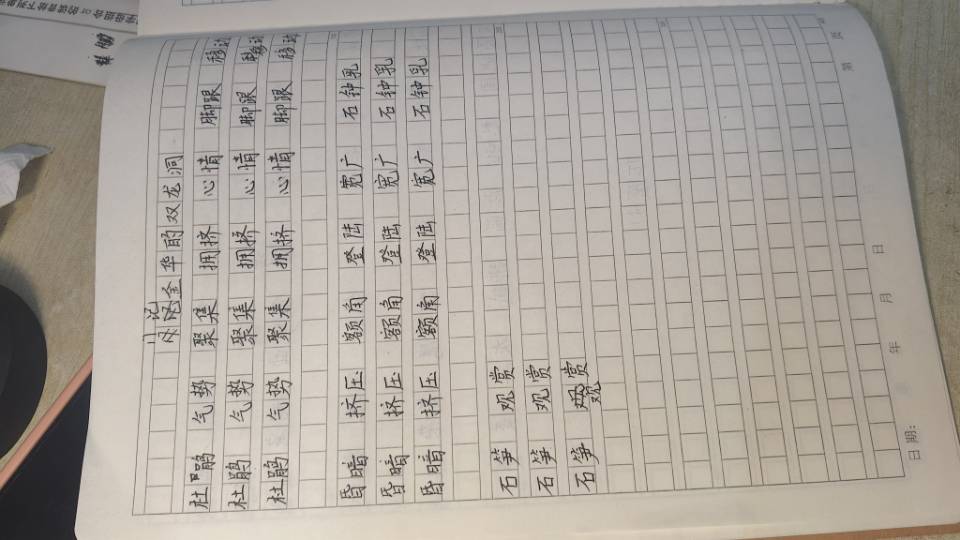 记金华的双龙洞
杜鹃 气势 聚集 拥挤 心情 脚跟 移动
杜鹃 气势 聚集 拥挤 心情 脚跟 移动
杜鹃 气势 聚集 拥挤 心情 脚跟 移动
昏暗 挤压 额角 登陆 宽广 石钟乳
昏暗 挤压 额角 登陆 宽广 石钟乳
昏暗 挤压 额角 登陆 宽广 石钟乳
石笋 观赏
石笋 观赏
石笋 观赏
日期: 年 月 日 第 页